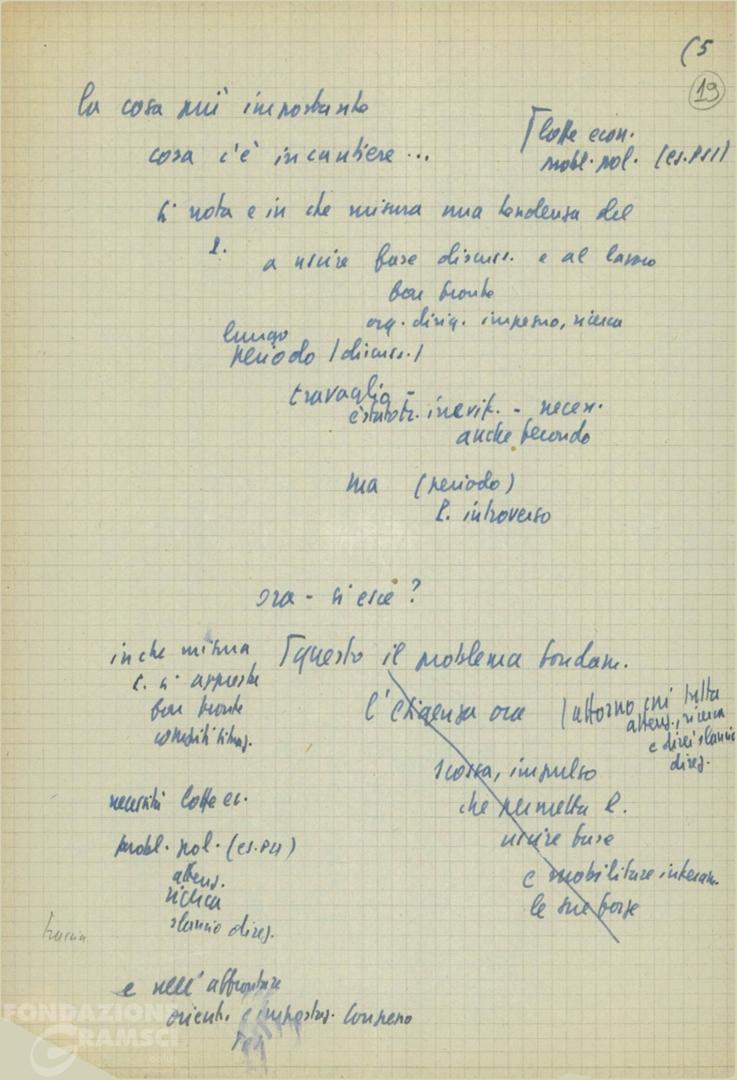 (5
19
la cosa più importante
cosa c'è in cantiere...
lotte econ.
probl. pol. (es. PSI)
si nota e in che misura una tendenza del
P.
a uscire fase discuss. e al lavoro
per fronte
org. dirig. impegno, ricerca
lungo
periodo (discuss.)
travaglio -
è stato inevit. - necess.
anche fecondo
ma (periodo)
P. introverso
ora - si esce?
in che misura
P. si appresta
far fronte
compiti situaz.
questo il problema fondam.
l'esigenza ora (attorno cui tutta
attenz., ricerca
e direi slancio
direz.
scossa, impulso
che permetta P.
uscire fase
e mobilitare interam.
le sue forze
necessità lotte ec.
probl. pol. (es. PSI)
attenz.
ricerca
slancio direz.
traccia
e nell'affrontare
orient. e impostaz. Congresso
FONDAZIONE
GRAMSCI